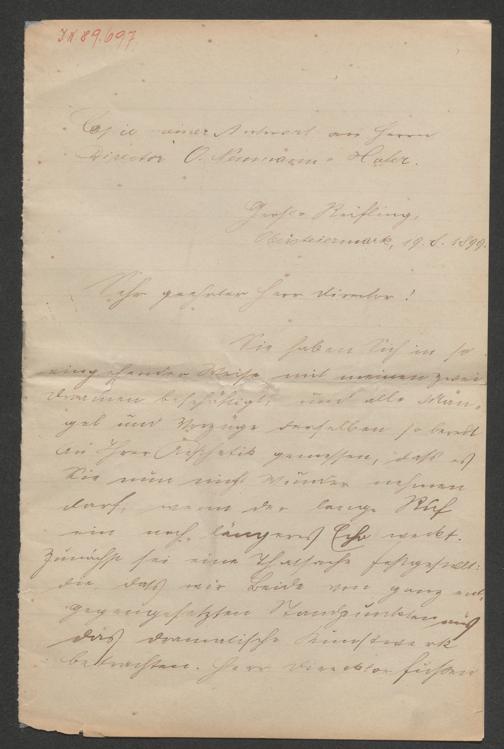 IN 89.697
Copie meiner Antwort an Herrn
Director O. Neumann-Hofer.
Gross-Reifling,
Obersteiermark, 19. 8. 1899.
Sehr geehrter Herr Director!
Sie haben Sich in so
eingehender Weise mit meinen zwei
Dramen beschäftigt und alle Män-
gel und Vorzüge derselben so beredt
an Ihrer Ästhetik gemessen, dass es
Sie nun nicht Wunder nehmen
darf, wenn der lange Ruf
ein noch längeres Echo weckt.
Zunächst sei eine Thatsache festgestellt:
die dass wir Beide von ganz ent-
gegengesetzten Standpunkten aus
das dramatische Kunstwerk
betrachten. Herr Director fussen